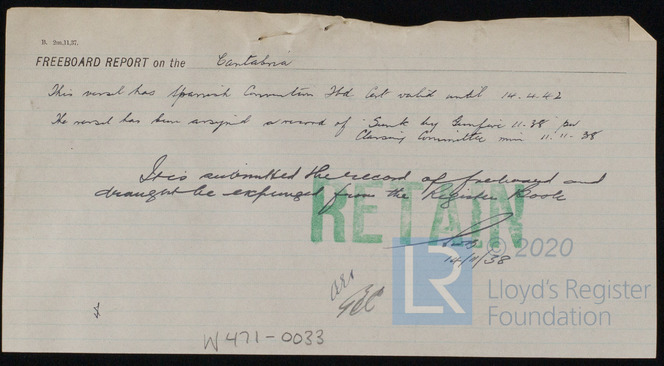 B. 2m.11,37.
FREEBOARD REPORT on the Cantabria
This vessel has Spanish Convention Fbd Cert valid until 14.4.42
The vessel has been assigned a record of "Sunk by Gunfire 11-38" per
Classing Committee min 11.11-38
It is submitted the record of freeboard and
draught be expunged from the Register Book
RETAIN
14/11/38
© 2020
LR
Lloyd's Register
Foundation
W471-0033